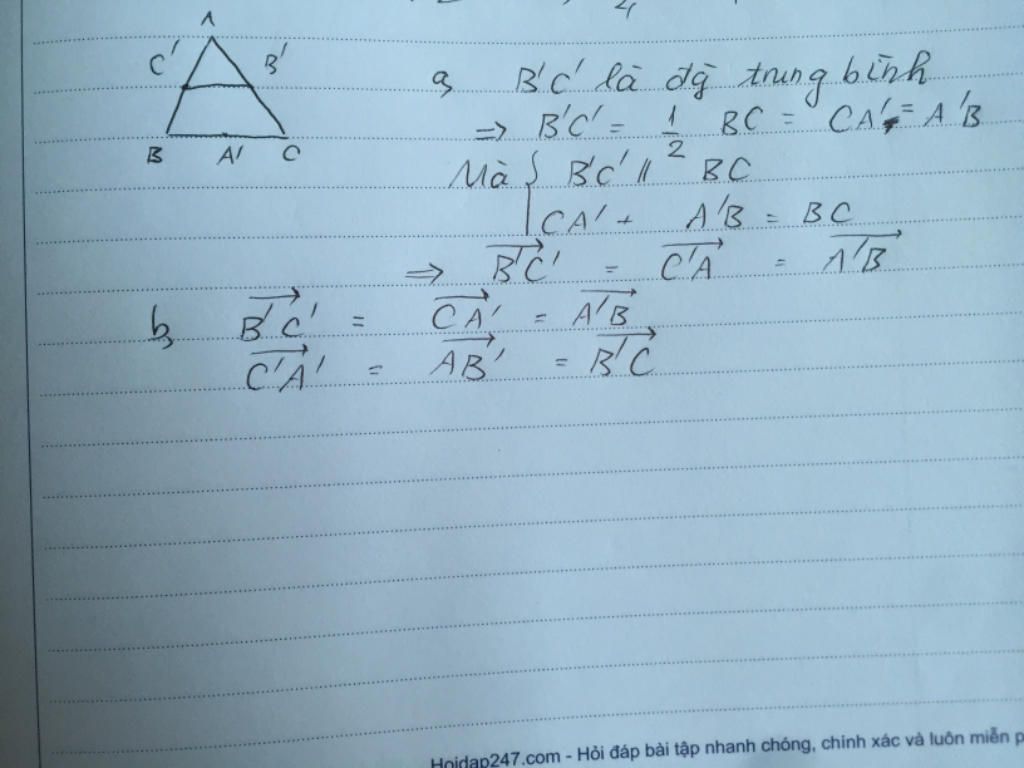 A
C' B'
B A' C
a, B'C' là đg trung bình
=> B'C' = 1/2 BC = CA' = A'B
Mà { B'C' // BC
CA' + A'B = BC
=> B'C' = C'A = A'B
b, B'C' = CA' = A'B
C'A' = AB' = B'C
Hoidap247.com - Hỏi đáp bài tập nhanh chóng, chính xác và luôn miễn p